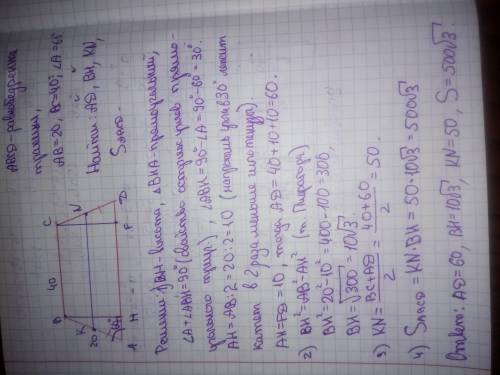 ABCD - равнобедренная
трапеция,
AB=20, BC=40, ∠A=60°
Найти: AD, BH, KN,
S ABCD -
B 40 C
K N
20
60°
A H F D
Решение: BH-высота, △BHA-прямоугольный,
∠A+∠ABH=90° (свойство острых углов прямо-
угольного треуг.) ∠ABH=90°-∠A=90°-60°=30°.
AH=AB:2=20:2=10 (напротив угла в 30° лежит
катет в 2 раза меньше гипотенузы).
AH=FD=10, тогда AD=40+10+10=60.
2) BH²=AB²-AH² (т. Пифагора)
BH²=20²-10²=400-100=300,
BH=√300=10√3.
3) KN= BC+AD / 2 = 40+60 / 2 = 50.
4) S ABCD = KN·BH=50·10√3=500√3
Ответ: AD=60, BH=10√3, KN=50, S=500√3.